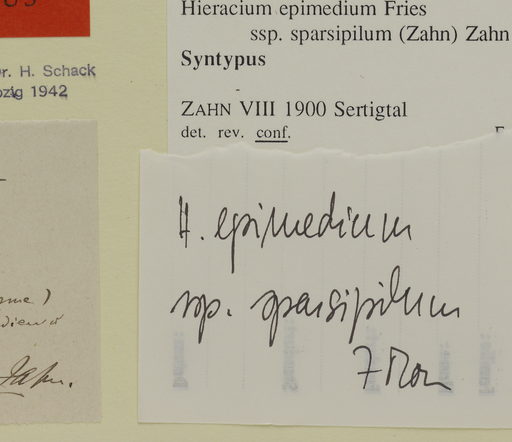 US
r. H. Schack
zig 1942
Hieracium epimedium Fries
ssp. sparsipilum (Zahn) Zahn
Syntypus
ZAHN VIII 1900 Sertigtal
det. rev. conf.
H. epimedium
ssp. sparsipilum
Zahn.